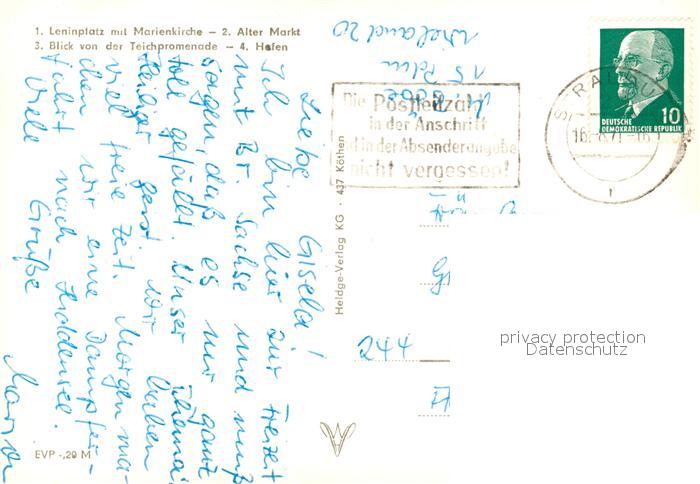 1. Leninplatz mit Marienkirche — 2. Alter Markt
3. Blick von der Teichpromenade — 4. Hafen
Liebe Gisela!
Ich bin hier zur Freizeit
mit Br. Sachse und muß
sagen, daß es mir ganz
toll gefällt. Unser Thema:
Heiliger Geist. Wir haben
viel freie Zeit. Morgen ma-
chen wir eine Dampfer-
fahrt nach Hiddensee.
Viele Grüße
EVP -,20 M
Heldge-Verlag KG · 437 Köthen
Die Postleitzahl
in der Anschrift
und in der Absenderangabe
nicht vergessen!
STRALSUND
DEUTSCHE
DEMOKRATISCHE REPUBLIK
10
244
privacy protection
Datenschutz